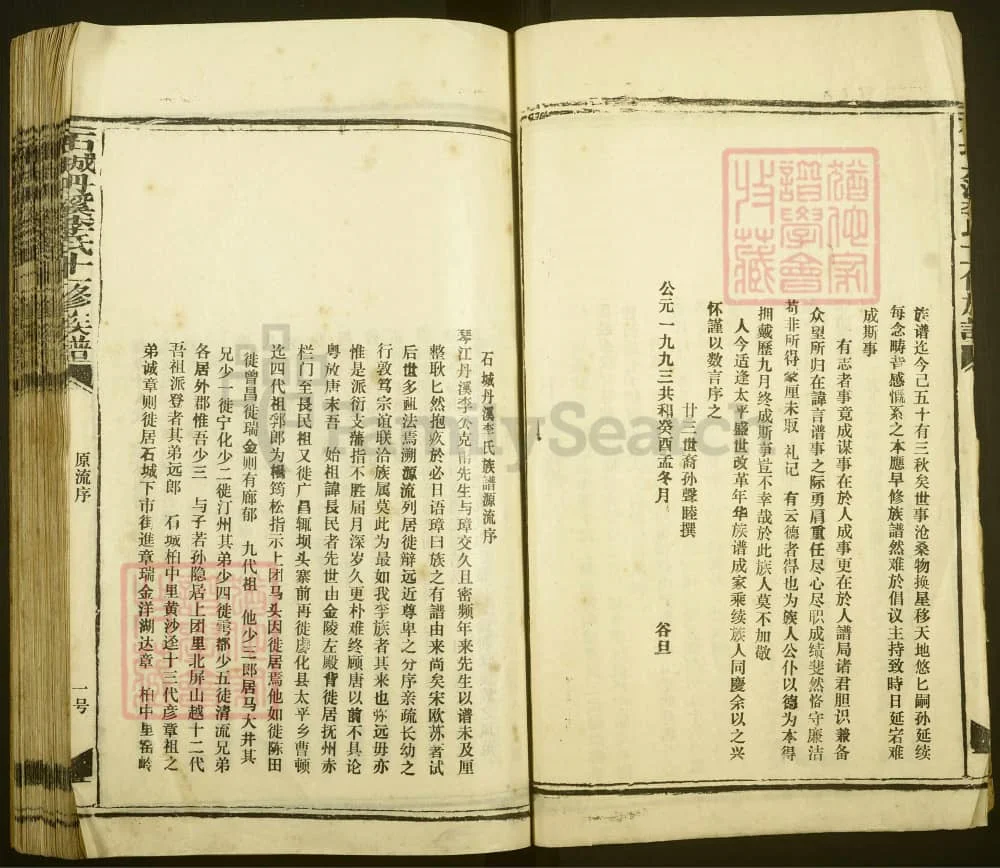 族谱迄今己五十有三秋矣世事沧桑物换星移天地悠匕嗣孙延续
每念畴昔感慨系之本應早修族譜然难於倡议主持致時日延宕难
成斯事
有志者事竟成谋事在於人成事更在於人譜局诸君胆识兼备
众望所归在諱言谱事之际勇肩重任尽心尽职成绩斐然恪守廉洁
苟非所得毫厘未取 礼记 有云德者得也为族人公仆以德为本得
拥戴歷九月终成斯事豈不幸哉於此族人莫不加敬
人今适逢太平盛世改革年华族谱成家乘续族人同慶余以之兴
怀謹以数言序之
廿三世裔孙聲睦撰
公元一九九三共和癸酉孟冬月 谷旦
石城丹溪李氏十一修族譜
原流序
一号
石城丹溪李氏族譜源流序
琴江丹溪李公克甯先生与璋交久且密频年来先生以谱未及厘
整耿匕然抱疚於必日语璋曰族之有譜由来尚矣宋欧苏者试
后世多祖法焉溯源流列居徙辩远近尊卑之分序亲疏长幼之
行敦笃宗谊联洽族属莫此为最如我李族者其来也弥远毋亦
惟是派衍支蕃指不胜届月深岁久更朴难终顾唐以前不具论
粤放唐末吾 始祖諱長民者先世由金陵左殿背徙居抚州赤
栏门至長民祖又徙广昌辄坝头寨前再徙虔化县太平乡曹顿
迄四代祖郛郎为楊筠松指示上团马头因徙居焉他如徙陈田
徙曾昌徙瑞金则有廊郁 九代祖 他少三郎居马大井其
兄少一徙宁化少二徙汀州其弟少四徙雩都少五徒清流兄弟
各居外郡惟吾少三 与子若孙隐居上团里北屏山越十二代
吾祖派登者其弟远郎 石城柏中里黄沙迳十三代彦章祖之
弟诚章则徙居石城下市街進章瑞金洋湖达章 柏中里窑岭